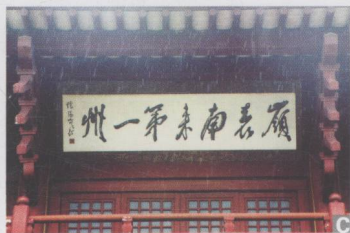 嶺表南来第一州
C